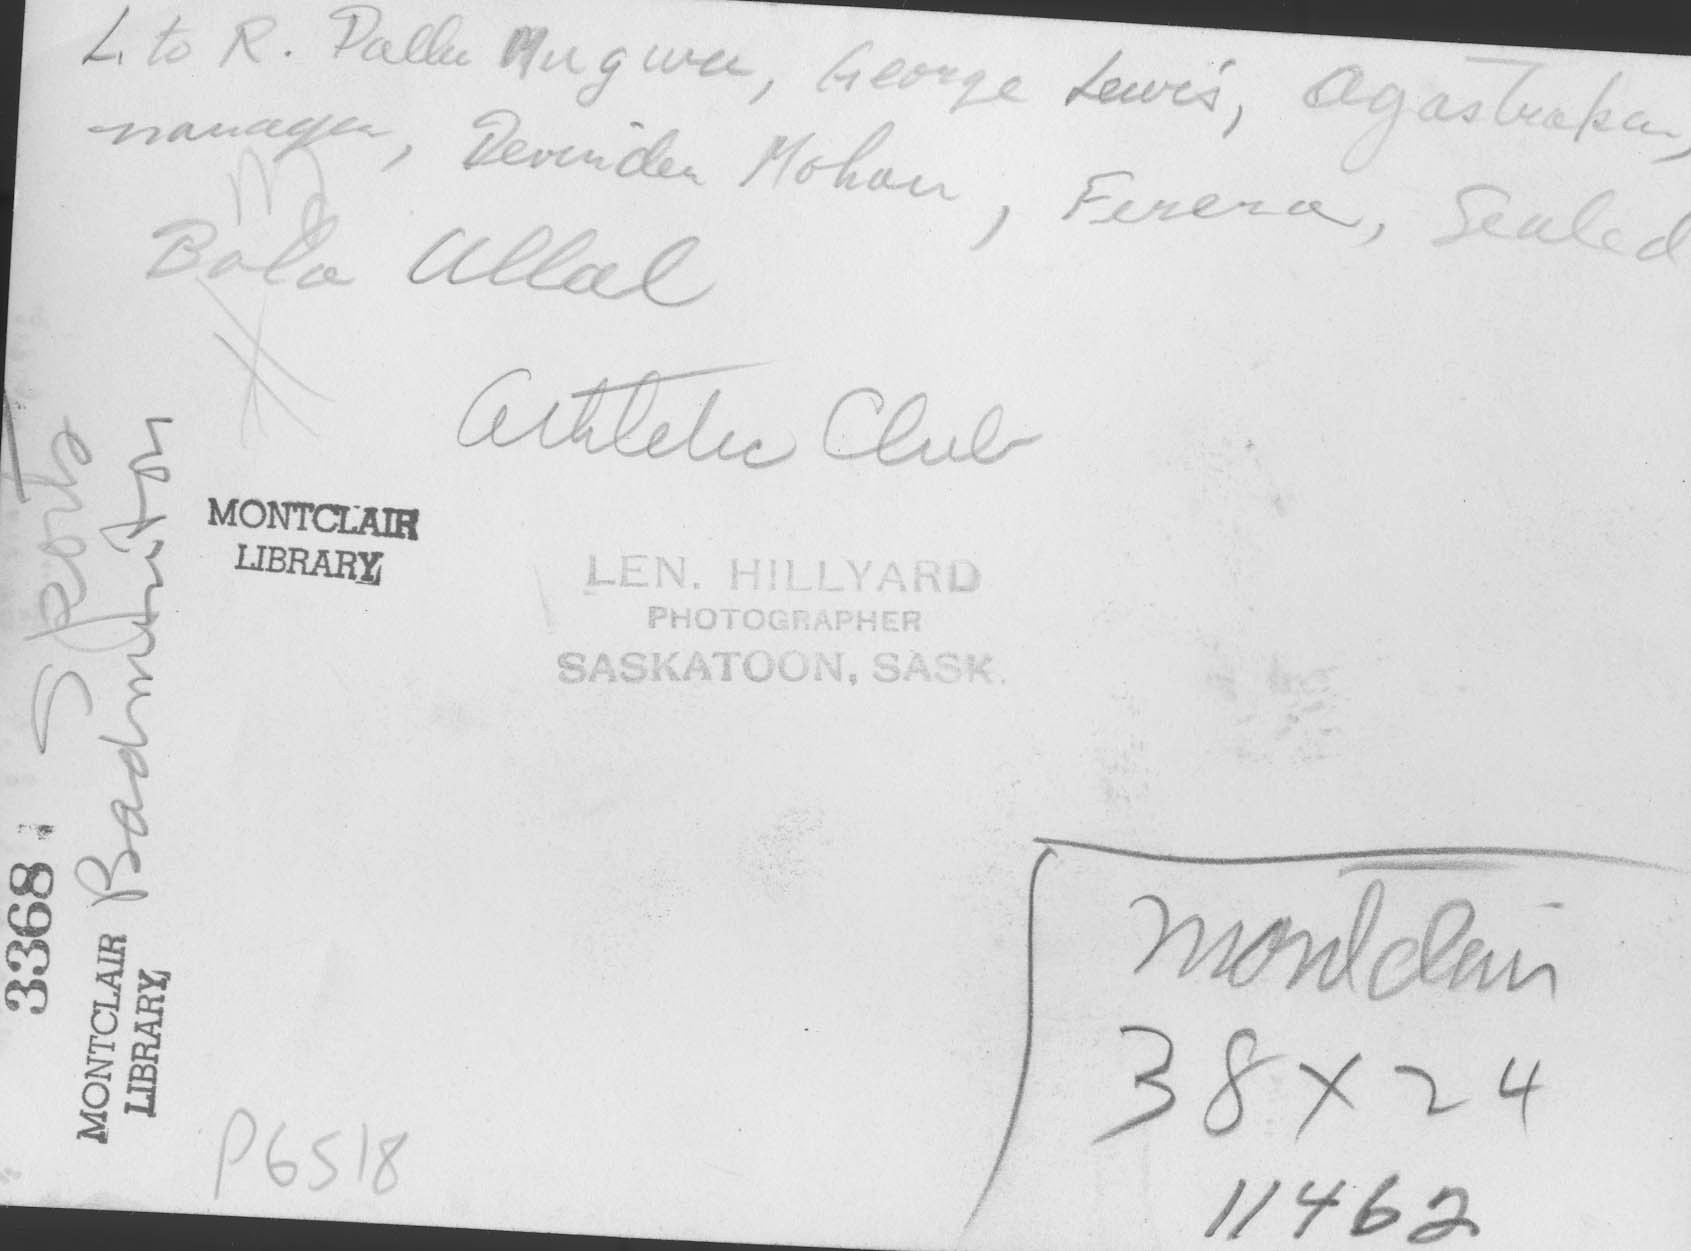 L. to R. Pallu Mugwee, George Lewis, Agastrakar,
manager, Devinder Mohan, Ferera, Seated
Bala Ullal
Athletic Club
MONTCLAIR
LIBRARY
LEN. HILLYARD
PHOTOGRAPHER
SASKATOON, SASK.
Sports
Badminton
3368
MONTCLAIR
LIBRARY
P6518
Montclair
38 X 24
11462